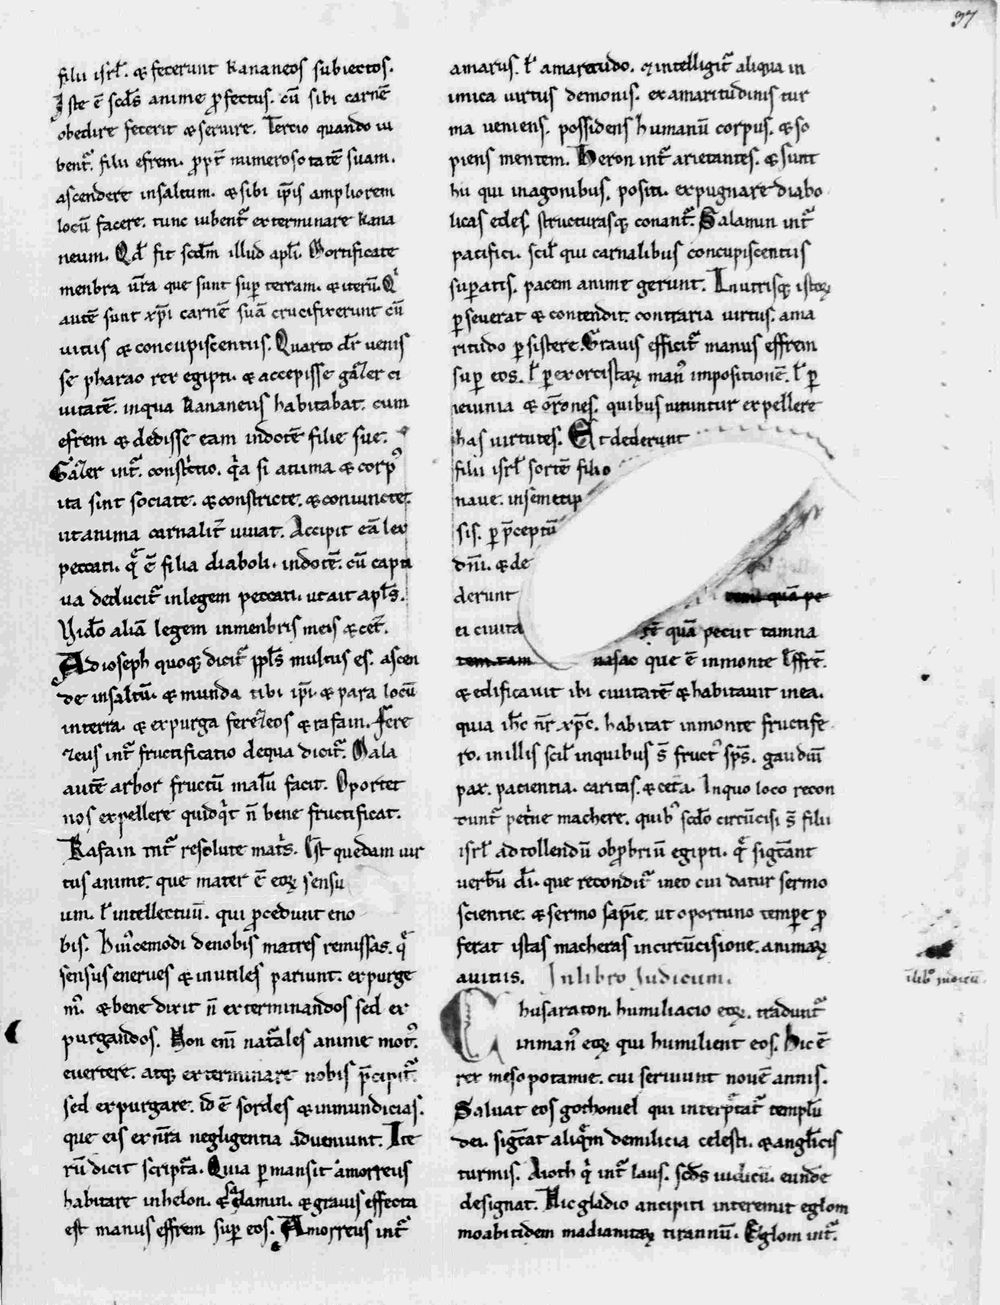 37
filii isrł. & fecerunt kananeos subiectos.
Iste ē scđs anime ꝑfectus. cū sibi carnē
obedire fecerit & seruire. Tercio quando iu
bent̃. filii efrem. ꝓpt̃ numerosotatē suam.
ascendere insaltum. & sibi ip̄is ampliorem
locū facere. tunc iubent̃ exterminare kana
neum. Qđ fit scđm illud apłi. Mortificate
menbra ūra que sunt suꝑ terram. & iterū. Q̇
autē sunt xp̄i carnē suā crucifixerunt cū
uitiis & concupiscentiis. Quarto dr̄ uenis
se pharao rex egipti. & accepisse gaꝫer ci
uitatē. inqua kananeus habitabat. cum
efrem & dedisse eam indotē filie sue.
Gaꝫer int̃. constictio. q̇a si anima & corp᷒
ita sint sociate. & constricte. & coniuncte.
utanima carnalit̃ uiuat. Accipit eā lex
peccati. q̄ ē filia diaboli. indotē. cū capti
ua deducit̃ inlegem peccati. utait apłs.
Video aliā legem inmenbris meis & cet̃.
Ad ioseph quoq; dicit̃ ppłs multus es. ascen
de insaltū. & munda tibi ip̄i. & para locū
interra. & expurga fereꝫeos & rafain. Fere
ꝫeus int̃ fructificatio dequa dicit̃. Mala
autē arbor fructū malū facit. Oportet
nos expellere quidq̇t n̄ bene fructificat.
Rafain int̃ resolute mat̃s. Est quedam uir
tus anime. que mater ē eoꝝ sensu
um. ł intellectuū. qui ꝓcedunt eno
bis. Hui᷒cemodi denobis matres remissas. q̄
sensus enerues & inutiles pariunt. expurge
m᷒. & bene dixit n̄ exterminandos sed ex
purgandos. Non eni nat̃ales anime mot᷒.
euertere. atq; exterminare nobis p̄cipit̃.
sed expurgare. id ē sordes & inmundicias.
que eis exn̄ra negligentia adueniunt. Ite
rū dicit script̃a. Quia ꝑmansit amorreus
habitare inhelon. & salamin. & grauis effecta
est manus effrem suꝑ eos. Amorreus int̃
amarus. ł amaritudo. & intelligit̃ aliqua in
imica uirtus demonis. examaritudinis tur
ma ueniens. possidens humanū corpus. & so
piens mentem. Heron int̃ arietantes. & sunt
hii qui inagonibus. positi. expugnare diabo
licas edes. structurasq; conant̃. Salamin int̃
pacifici. scił qui carnalibus concupiscentiis
suꝑatis. pacem anime gerunt. Inutrisq; istoꝝ
ꝑseuerat & contendit. contraria uirtus. ama
ritudo ꝑsistere. Grauis efficit̃ manus effrem
suꝑ eos. ł ꝑ exorcistaꝝ man᷒ impositionē. ł ꝑ
ieiunia & or̄ones. quibus nituntur expellere
has uirtutes. Et dederunt
filii isrł sortē filio
naue. insemetip
sis. ꝑ p̄ceptū
dn̄i. & de
derunt quā pe
ei ciuita tē quā peciit tamna
tem tam nasac que ē inmonte Effrē.
& edificauit ibi ciuitatē & habitauit inea.
quia ih̄c nr̄ xp̄c. habitat inmonte fructife
ro. inillis scił inquibus s̄ fruct᷒ sp̄s. gaudiū
pax. pacientia. caritas. & cet̃a. Inquo loco recon
dunt̃ pet̃ne machere. quib᷒ scđo circūcisi s̄ filii
isrł ad tollendū obꝓbriū egipti. q̄ sig̃cant
uerbū di. que recondit̃ ineo cui datur sermo
scientie. & sermo sapīe. ut oportuno tempe ꝓ
ferat istas macheras incircūcisione. animaꝝ
auitiis. In libro Iudicum.
Chusaraton. humiliacio eoꝝ. tradunt̃
inman᷒ eoꝝ qui humilient eos. Hic ē
rex mesopotamie. cui seruiunt nouē annis.
Saluat eos gothoniel qui interp̄tat̃ templū
dei. sig̃cat aliq̄m demilicia celesti. & angłicis
turmis. Aioth q̇ int̃ laus. scđs iudicū. eunde
designat. Hic gladio ancipiti interemit eglom
moabitidem madianitaꝝ tirannū. Eglom int̃.